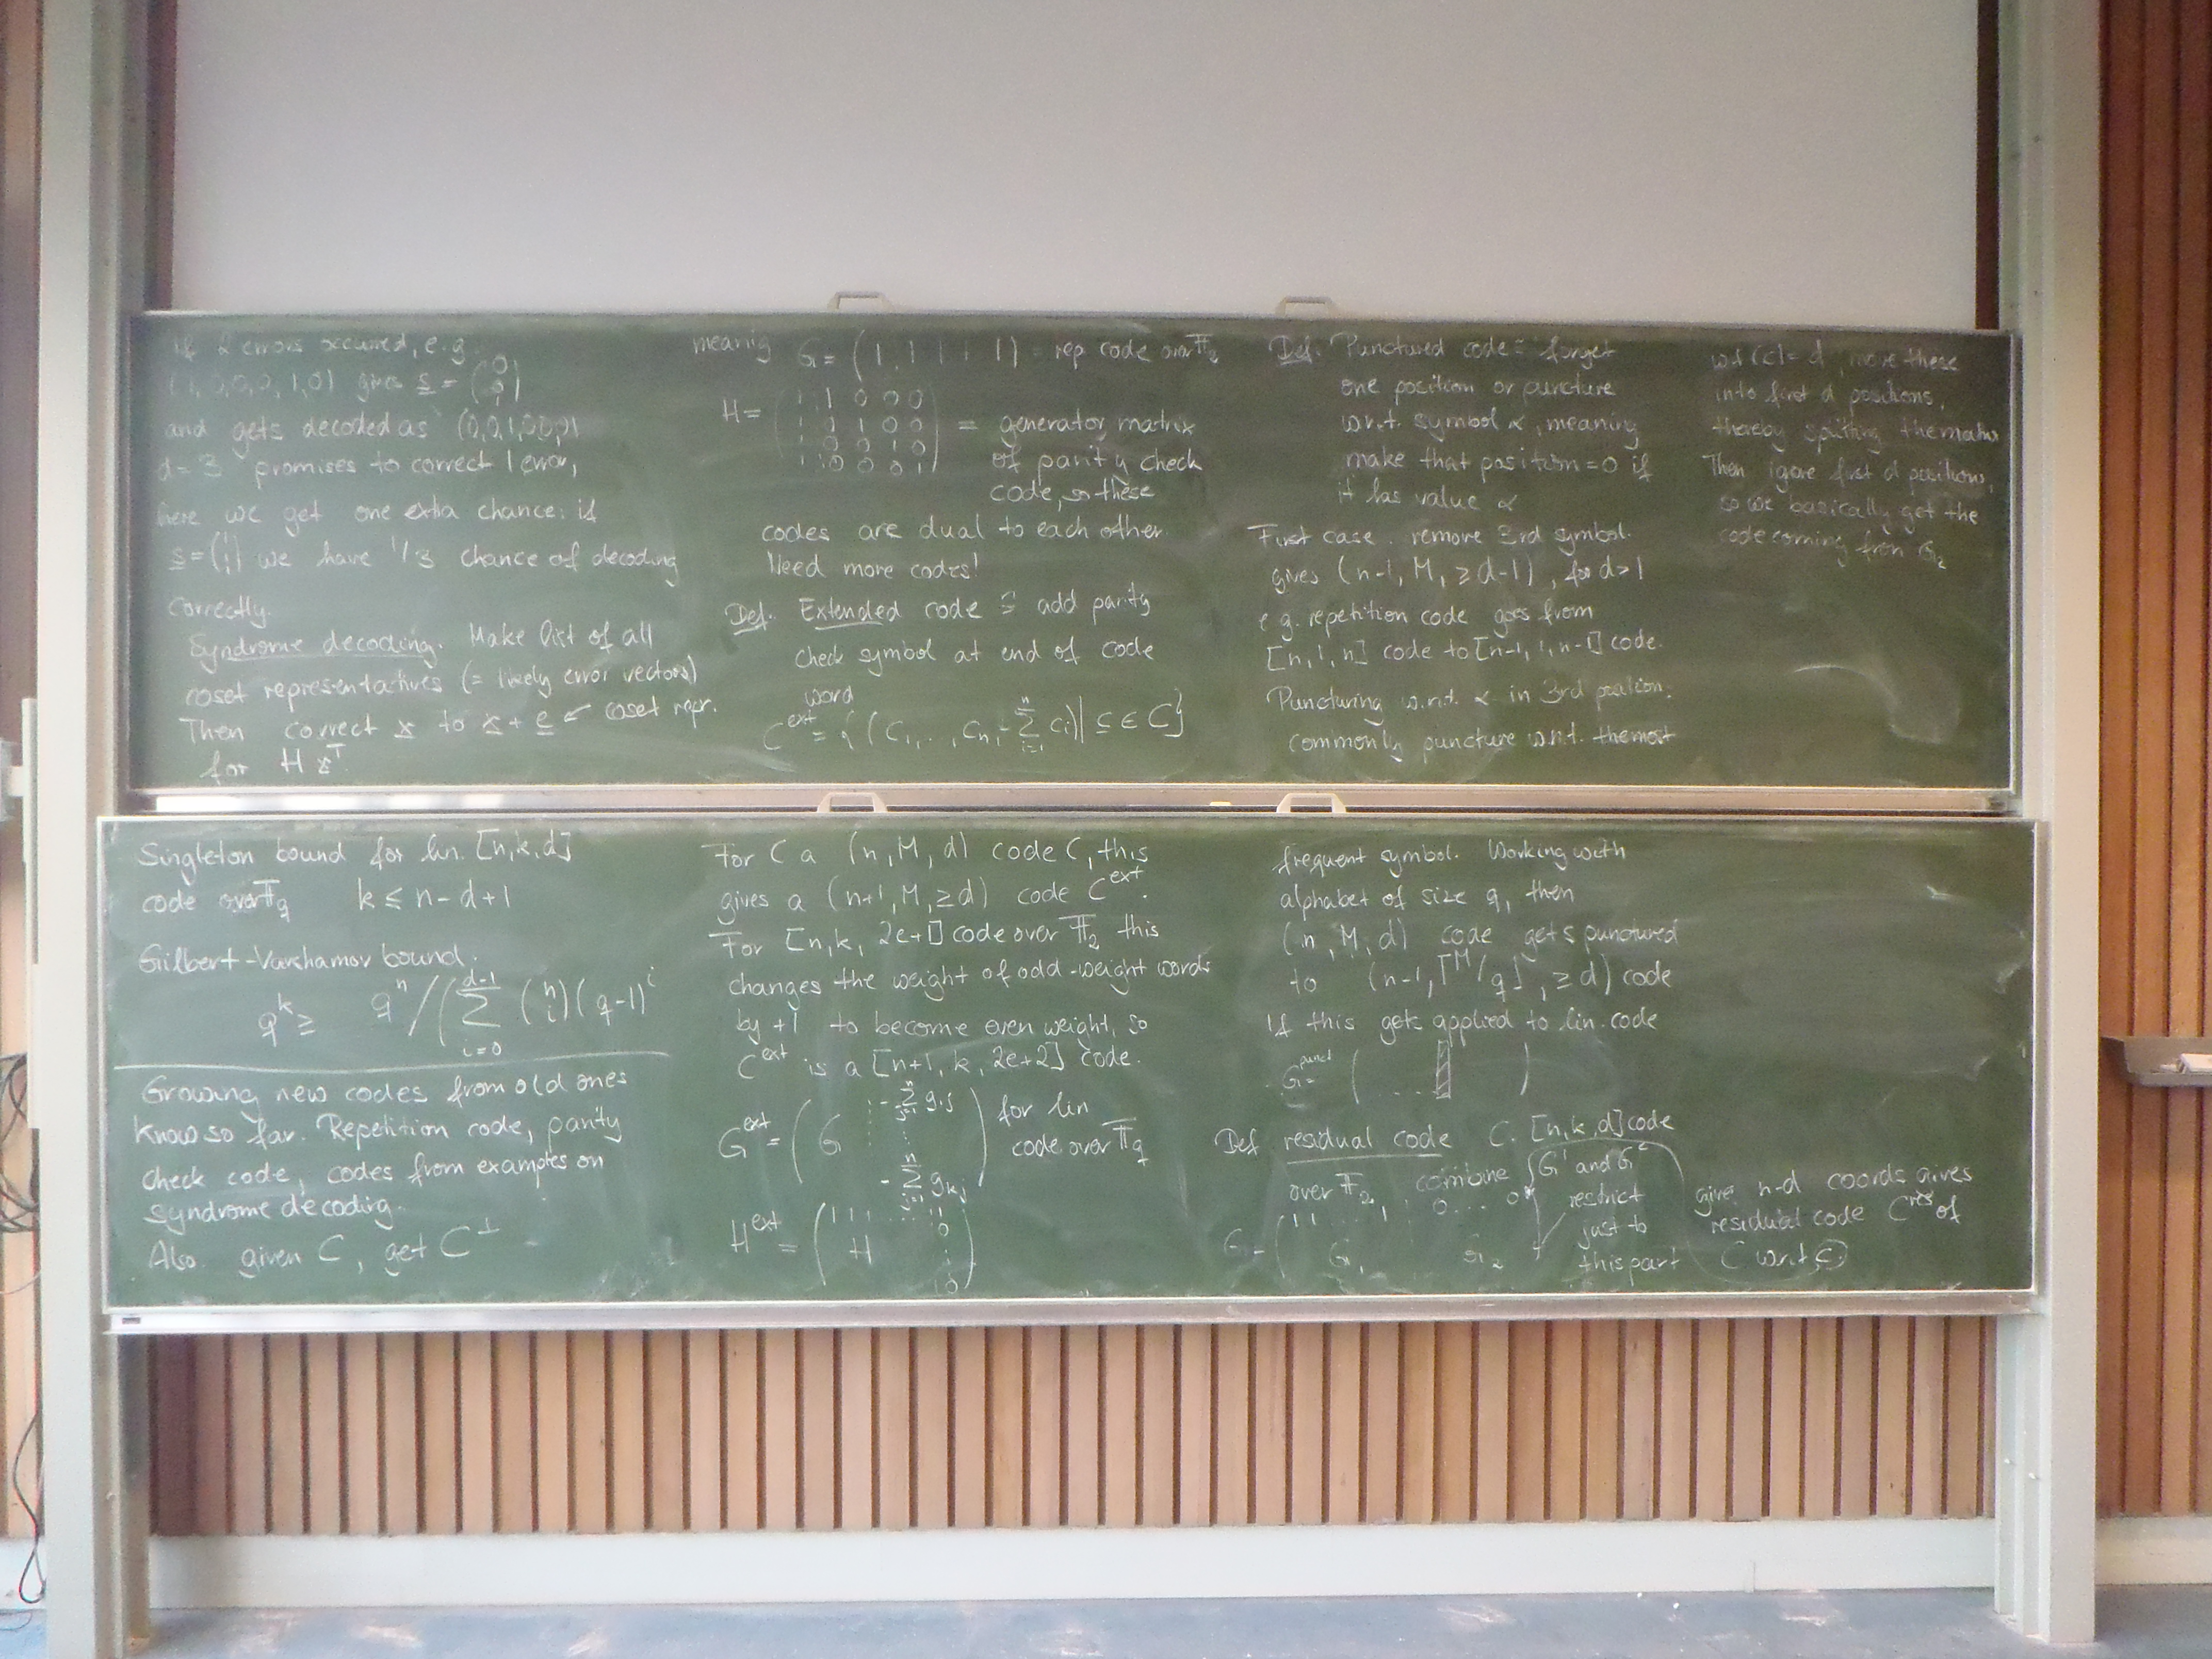 If 2 errors occured, e.g.
(1,0,0,0,1,0) gives s =
and gets decoded as (0,0,1,0,0,0)
d=3 promises to correct 1 error,
here we get one extra chance: if
s = (1 1 1) we have 1/3 chance of decoding
correctly.
Syndrome decoding. Make list of all
coset representatives (= likely error vectors)
Then correct x to x + e ← coset repr.
for H x^T
Singleton bound for lin. [n,k,d]
code over F_q k ≤ n-d+1
Gilbert-Varshamov bound.
q^k ≥ q^n / (∑_{i=0}^{d-1} (n i) (q-1)^i
Growing new codes from old ones
Know so far. Repetition code, parity
check code, codes from examples on
syndrome decoding.
Also given C, get C^⊥
meanig G = (1 1 1 1 1) = rep code over F_2
H = ( 1 1 0 0 0
1 0 1 0 0 = generator matrix
1 0 0 1 0 of parity check
1 0 0 0 1 ) code, so these
codes are dual to each other
Need more codes!
Def. Extended code ≙ add parity
check symbol at end of code
word
C^ext = { (c_1, .., c_n, -∑_{i=1}^n c_i) | c ∈ C }
For C a (n, M, d) code C, this
gives a (n+1, M, ≥d) code C^ext.
For [n,k, 2e+1] code over F_2 this
changes the weight of odd-weight words
by +1 to become even weight, so
C^ext is a [n+1, k, 2e+2] code.
G^ext = ( G -∑_{j=1}^n g_{1j} ⋮ -∑_{j=1}^n g_{kj} ) for lin
code over F_q
H^ext = ( 1 1 1 ... 1
H 0
⋮
0 )
Def. Punctured code ≙ forget
one position or puncture
w.r.t. symbol α, meaning
make that position = 0 if
it has value α
First case. remove 3rd symbol.
gives (n-1, M, ≥ d-1), for d>1
e.g. repetition code goes from
[n,1,n] code to [n-1, 1, n-1] code.
Puncturing w.r.t. α in 3rd position.
commonly puncture w.r.t. the most
frequent symbol. Working with
alphabet of size q, then
(n, M, d) code gets punctured
to (n-1, ⌈M/q⌉, ≥d) code
If this gets applied to lin. code
G^punct = ( ... )
Def residual code C. [n,k,d] code
over F_2, combine G^1 and G^2
G = ( 1 1 ... 1 0 ... 0
G_1 G_2 )
restrict
just to
this part
wt(c) = d, move these
into first d positions,
thereby spitting the matrix
Then igore first d positions,
so we basically get the
code coming from G_2
give n-d coords gives
residual code C^res of
C w.r.t. c